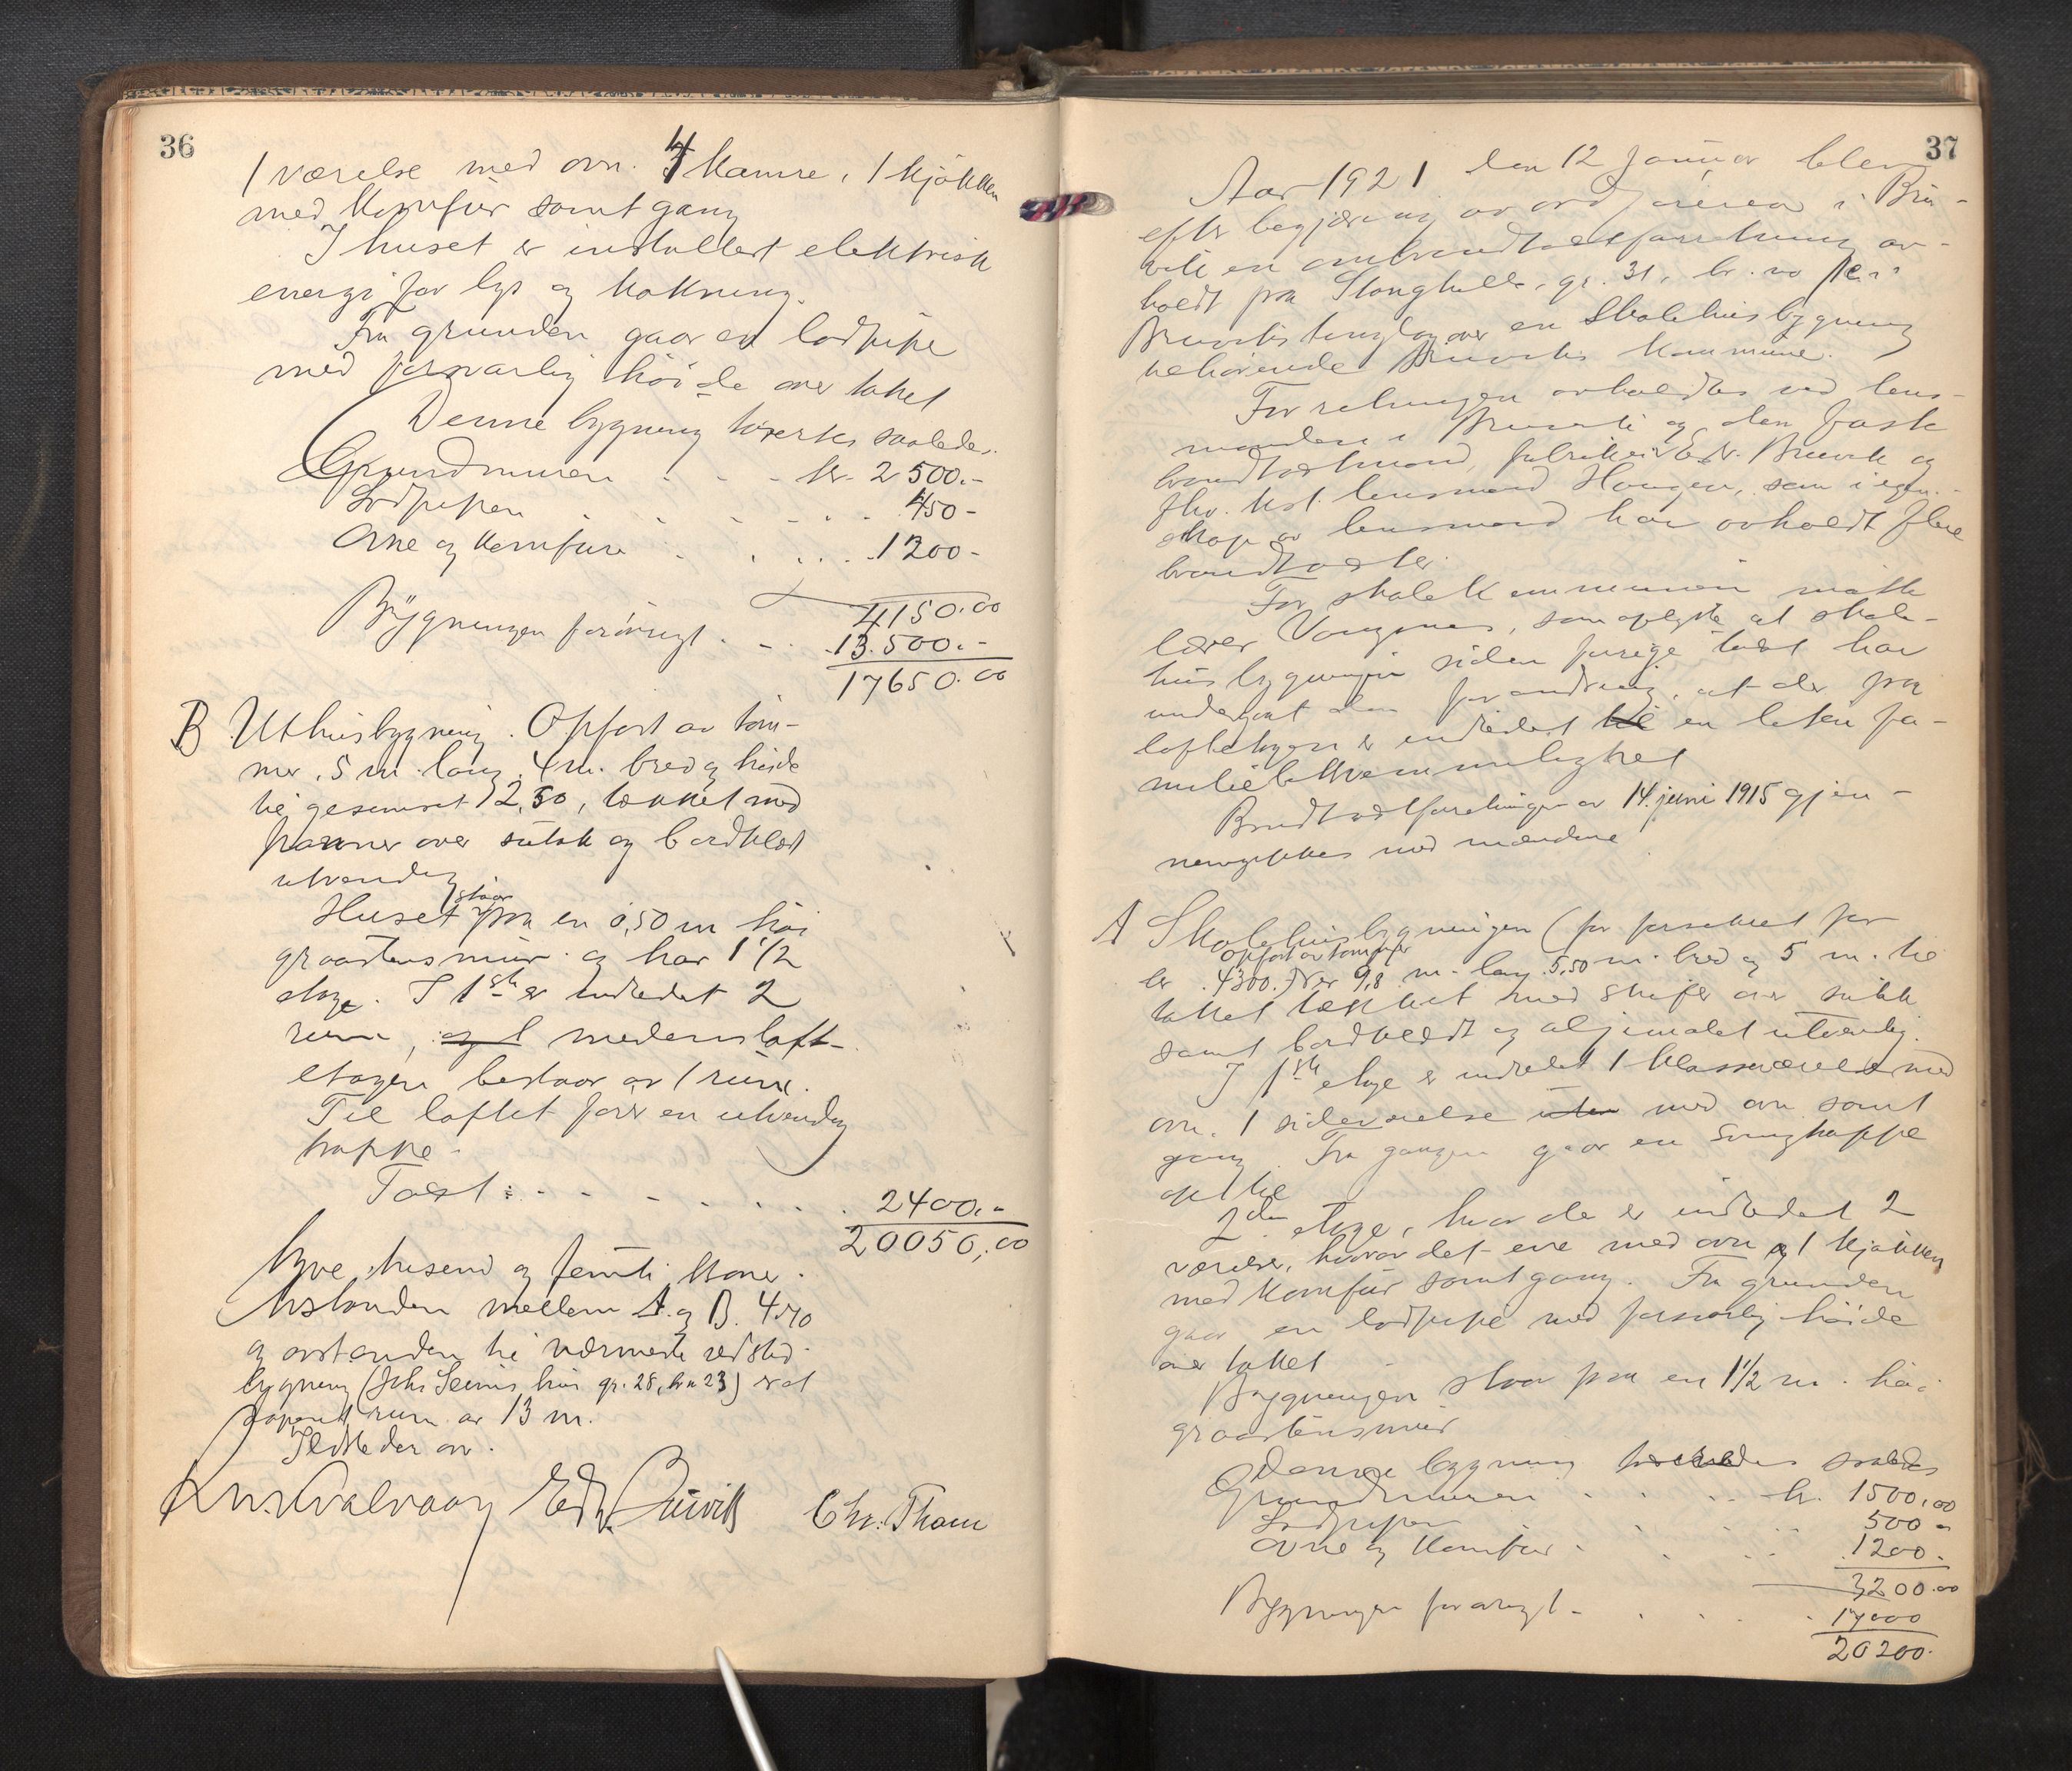 36
1 værelse med ovn. 4 kamre, 1 kjøkken
med komfur samt gang
I huset er installert elektrisk
energi for lys og kokning.
Fra grunden gaar en lodpipe
med forsvarlig høide over taket
Denne bygning takseres saaledes:
Grundmuren . . . kr. 2 500.-
Lodpipen . . . . . . 450 -
Ovne og komfure . . . . . 1200 -
4150.00
Bygningen forøvrigt . - - 13.500.-
17650.00
B Uthusbygning. Opført av tøm-
mer, 5 m. lang, 4 m. bred og høide
til gesimset 2,50, tækket med
panner over sutak og bordklædt
utvendig
Huset staar paa en 0,50 m høi
graastensmur og har 1 1/2
etage. I 1ste er indredet 2
rum, og 1 medens loft-
etagen bestaar av 1 rum.
Til loftet fører en utvendig
trappe.
Takst: - - - - . . . 2400.-
20050,00
Tyve tusend og femti kroner.
Avstanden mellem A. og B. 4,70
og avstanden til nærmeste ildsted-
bygning (Johs Seims hus gr. 28, br. n 23) er et
aapent rum av 13 m.
Ildsteder ovn.
Kn. Kvalvaag Edv. Bruvik Chr. Thom
37
Aar 1921 den 12 januar blev
efter begjæring av ordføreren i Bru-
vik en ombrandtakstforretning av-
holdt paa Stanghelle, gr. 31, br. no i
Bruviks tinglag over en Skolehusbygning
tilhørende Bruviks kommune.
Forretningen avholdtes ved lens-
manden i Bruvik og den faste
brandtakstmand, fabrikeier Edv. Bruvik og
fhv. kst. lensmand Haugen, som i egen-
skap av lensmand har avholdt flere
brandtakster.
For skolekommunen møtte
lærer Vangsnes, som oplyste at skole-
husbygningen siden forrige takst har
undergaat den forandring, at der paa
loftetagen er indredet til en liten fa-
miliebekvemmelighet
Brandtakstforretningen av 14. juni 1915 gjen-
nemgikkes med mændene
A Skolehusbygningen (før forsikret for
opført av tømmer
kr. 4300.) er 9,8 m. lang 5,50 m. bred og 5 m. til
taket tækket med skifer over sutak
samt bordklædt og oljemalet utvendig.
I 1ste etage er indredet 1 klasseværelse med
ovn. 1 sideværelse uten med ovn samt
gang. Fra gangen gaar en svingtrappe
op til
2den etage, hvor der er indredet 2
værelser, hvorav det ene med ovn og 1 kjøkken
med komfur samt gang. Fra grunden
gaar en lodpipe med forsvarlig høide
over taket
Bygningen staar paa en 1 1/2 m. høi
graastensmur
Denne bygning taksertes saaledes
Grundmuren . . . . kr. 1500,00
Lodpipen . . . . 500 -
Ovne og komfur . . . . 1200.
3200.00
Bygningen forøvrigt - . . . 17000
20200.